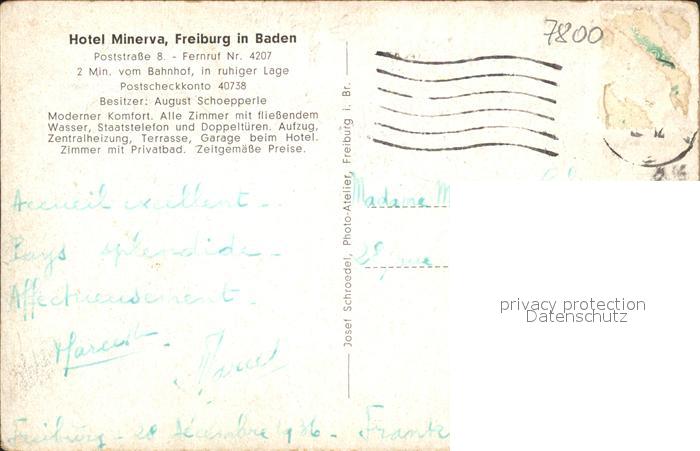 Hotel Minerva, Freiburg in Baden
Poststraße 8. - Fernruf Nr. 4207
2 Min. vom Bahnhof, in ruhiger Lage
Postscheckkonto 40738
Besitzer: August Schoepperle
Moderner Komfort. Alle Zimmer mit fließendem
Wasser, Staatstelefon und Doppeltüren. Aufzug,
Zentralheizung, Terrasse, Garage beim Hotel.
Zimmer mit Privatbad. Zeitgemäße Preise.
Accueil excellent -
Pays splendide -
Affectueusement -
Marcel
Freiburg - 28 décembre 1936 -
Josef Schroedel, Photo-Atelier, Freiburg i. Br.
7800
Madame M
28, rue
privacy protection
Datenschutz